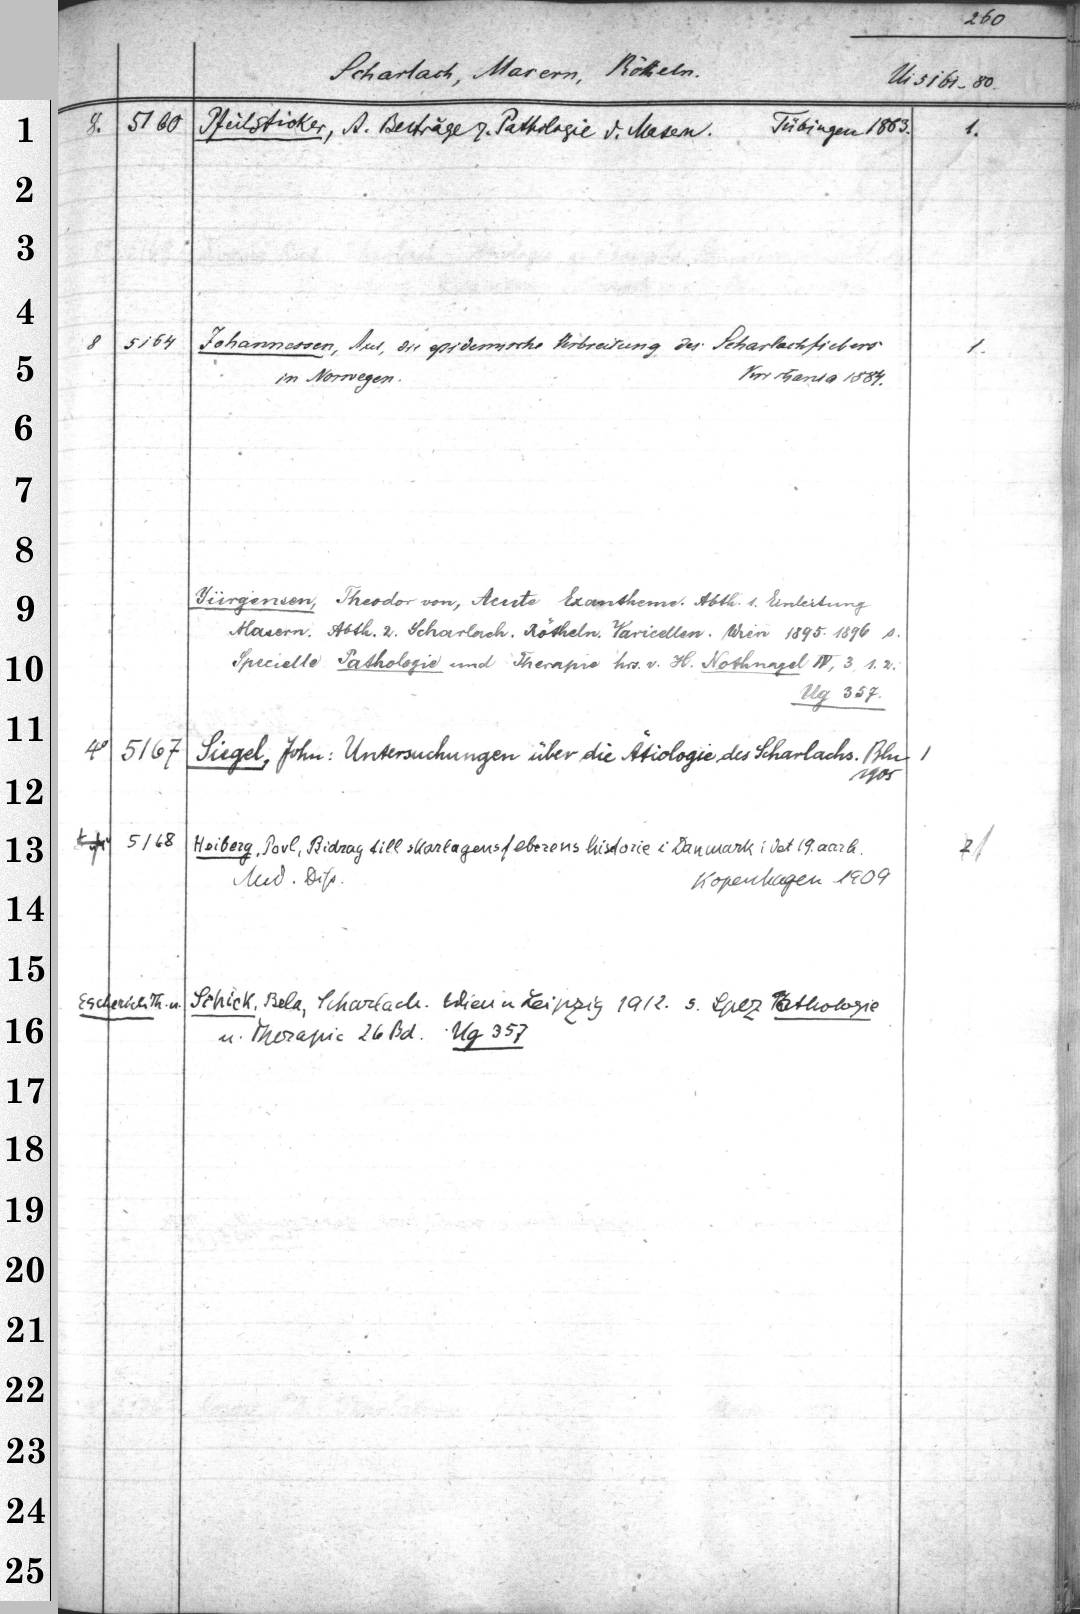 260
Scharlach, Masern, Rötheln. Ui 5161-80.
1 8. 5160 Pfeilsticker, A. Beiträge z. Pathologie d. Masern. Tübingen 1863. 1.
2
3
4
8 5164 Johannessen, Axel, die epidemische Verbreitung des Scharlachfiebers 1.
5 in Norwegen. Kristiania 1884.
6
7
8
9 Jürgensen, Theodor von, Acute Exantheme. Abth. 1. Einleitung
Masern. Abth. 2. Scharlach. Rötheln. Varicellen. Wien 1895-1896 s.
10 Specielle Pathologie und Therapie hrs. v. H. Nothnagel IV, 3, 1.2.
Ug 357.
11
4° 5167 Siegel, John: Untersuchungen über die Ätiologie des Scharlachs. Bln 1
1905
12
13 5168 Heiberg, Povl, Bidrag till skarlagensfeberens historie i Danmark i det 19. aarh.
Med. Diss. Kopenhagen 1909
14
15
Escherich Th. u. Schick, Bela, Scharlach. Wien u Leipzig 1912. s. Spez Pathologie
16 u. Therapie 26 Bd. Ug 357
17
18
19
20
21
22
23
24
25